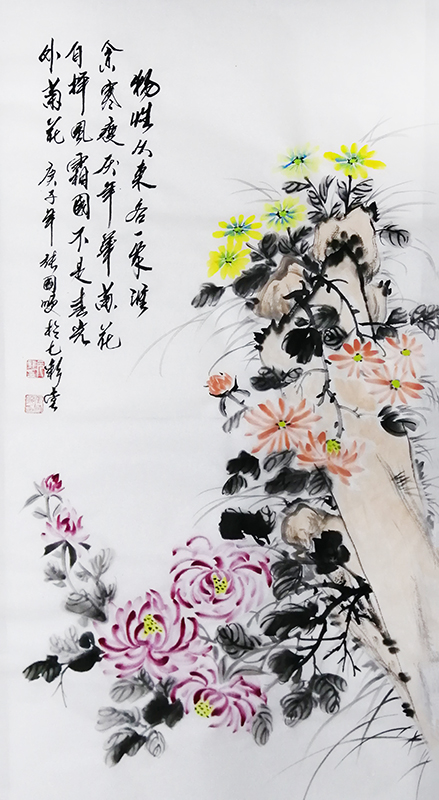 物性从来各一家谁
贪寒瘦厌年華菊花
自择风霜国不是春光
外菊花 庚子年 张国 於七彩